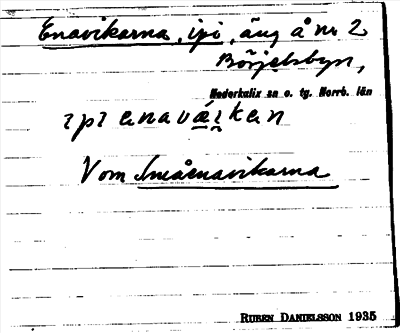 Enavikarna, ipi, äng å nr 2
Börjelsbyn,
Nederkalix sn o. tg. Norrb. län
ɿpɿ enavǽɿken
Vom Småenavikarna
RUBEN DANIELSSON 1935